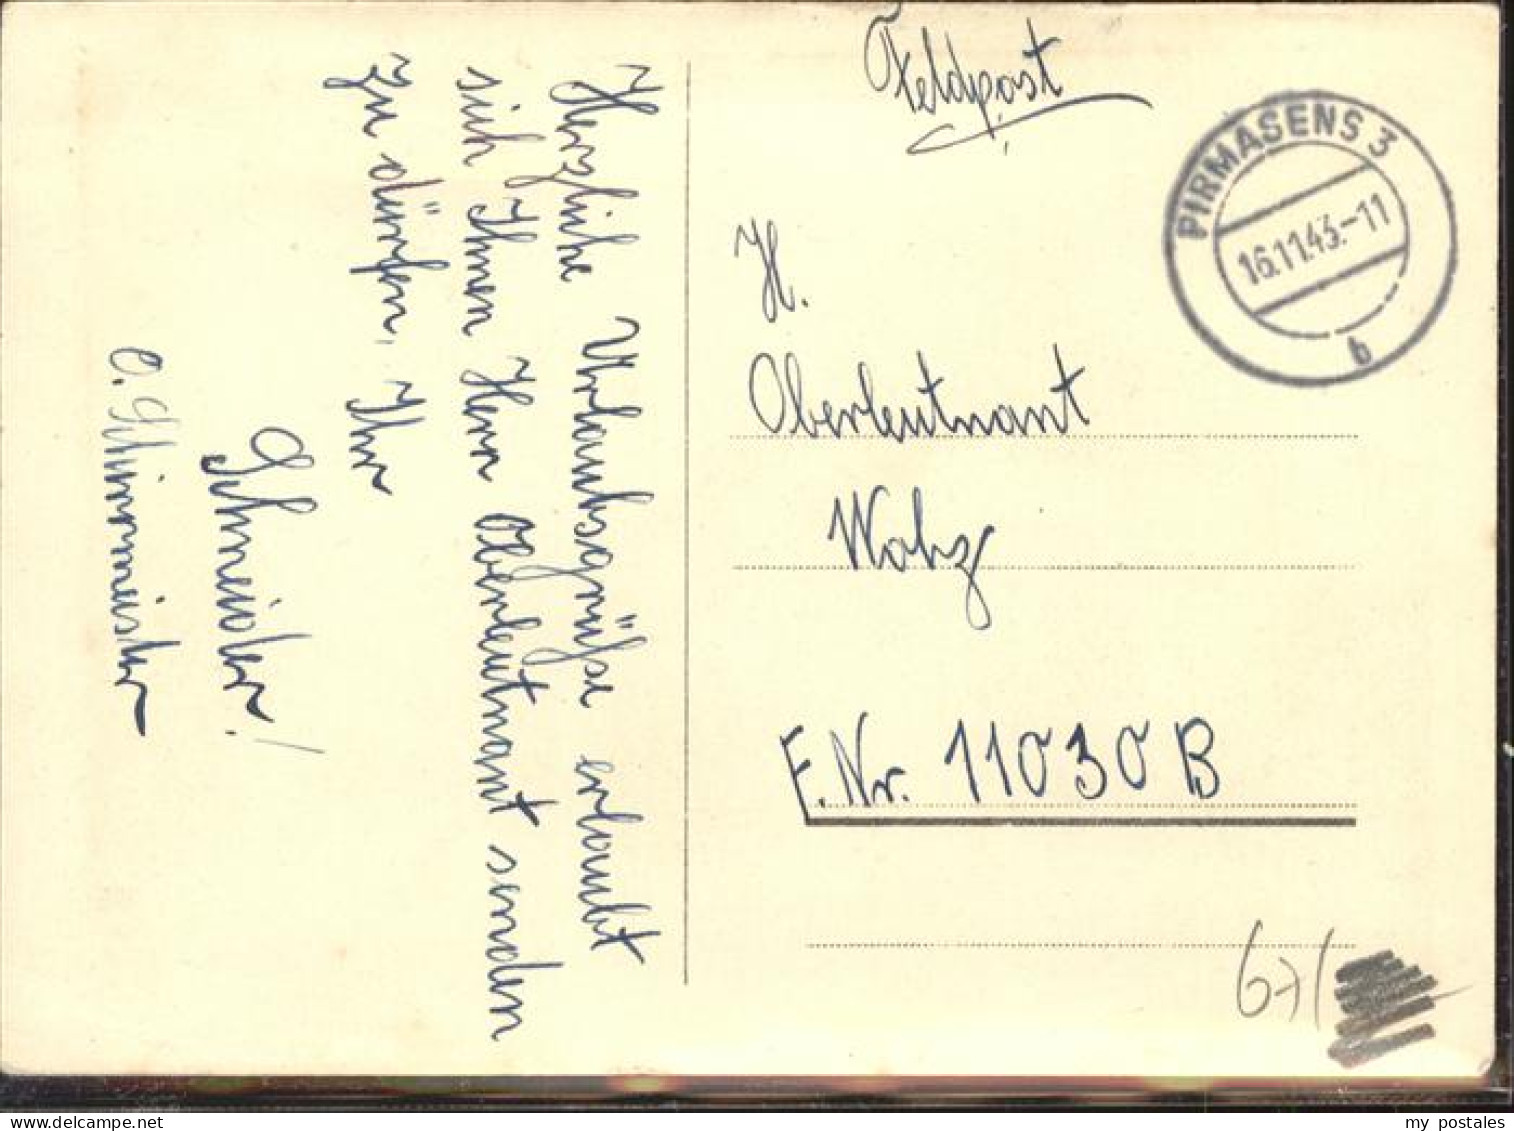 Feldpost
PIRMASENS 3
16.11.43.-11
b
H.
Oberleutnant
F.Nr. 11030 B
Herzliche Urlaubsgrüße erlaubt
sich Ihnen Herr Oberleutnant senden
zu dürfen, Ihr
Schneider!
671
akpool.de
my postales